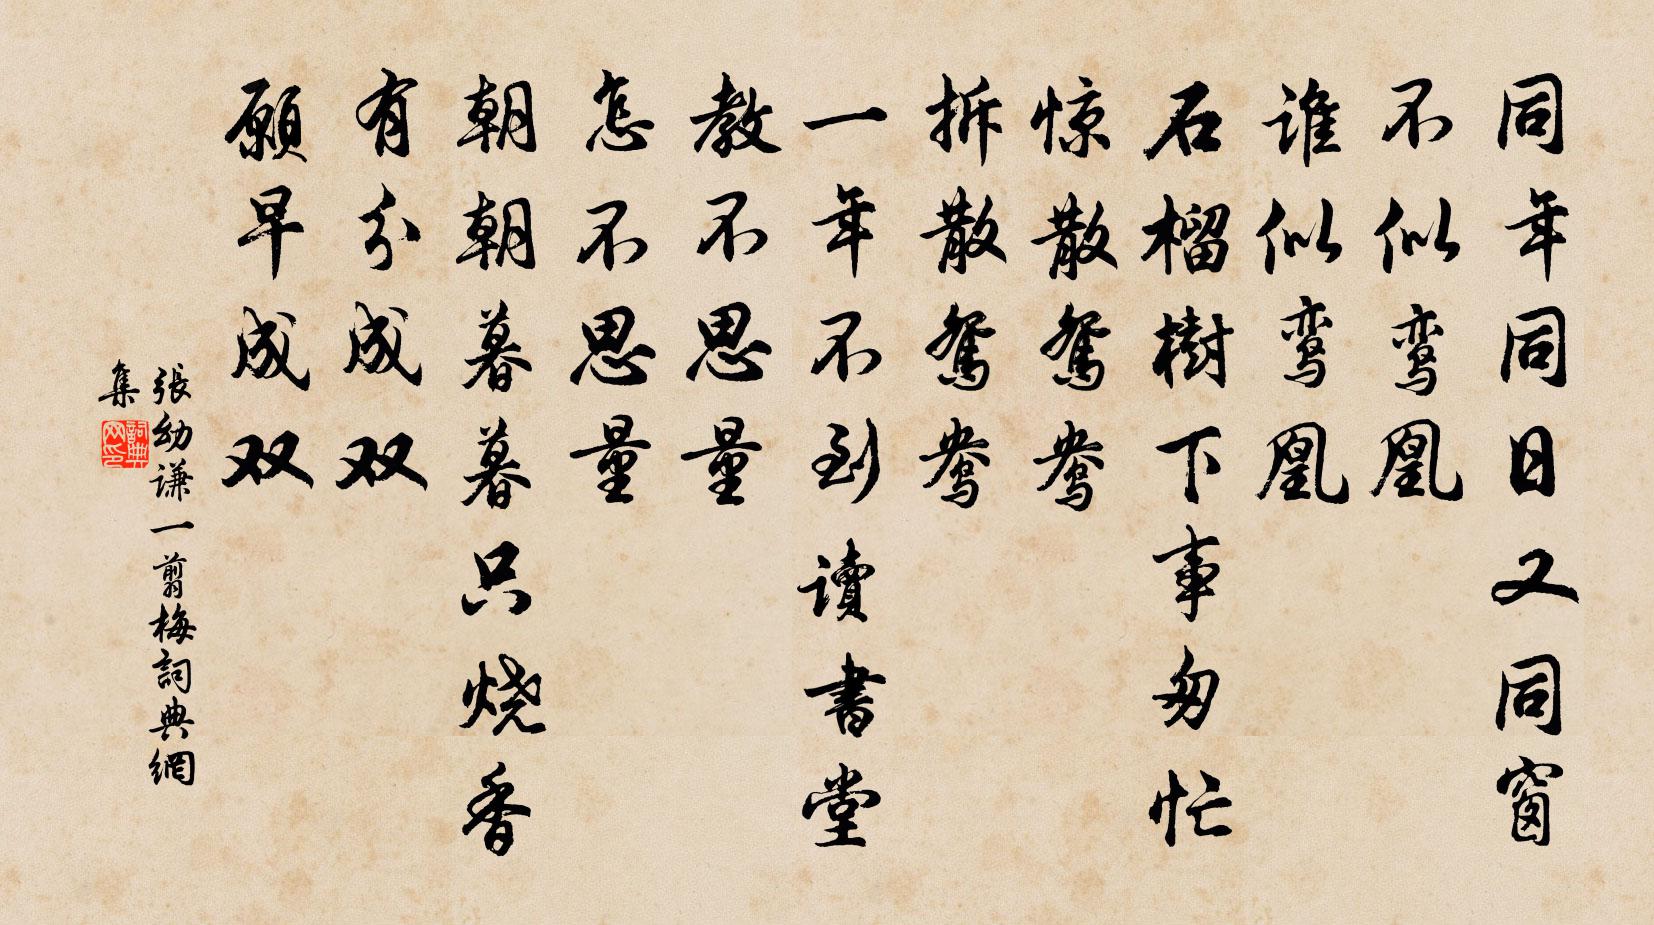 同年同日又同窗
不似鸾凰
谁似鸾凰
石榴樹下事匆忙
惊散鸳鸯
拆散鸳鸯
一年不到讀書堂
教不思量
怎不思量
朝朝暮暮只烧香
有分成双
願早成双
張幼谦一剪梅詞典網
集
詞典
网印